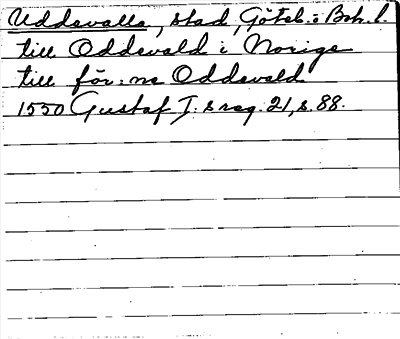 Uddevalla, stad, Göteb. o Boh. l.
till Oddevald i Norige
till för: ne Oddevald
1550 Gustaf I:s reg. 21, s. 88.